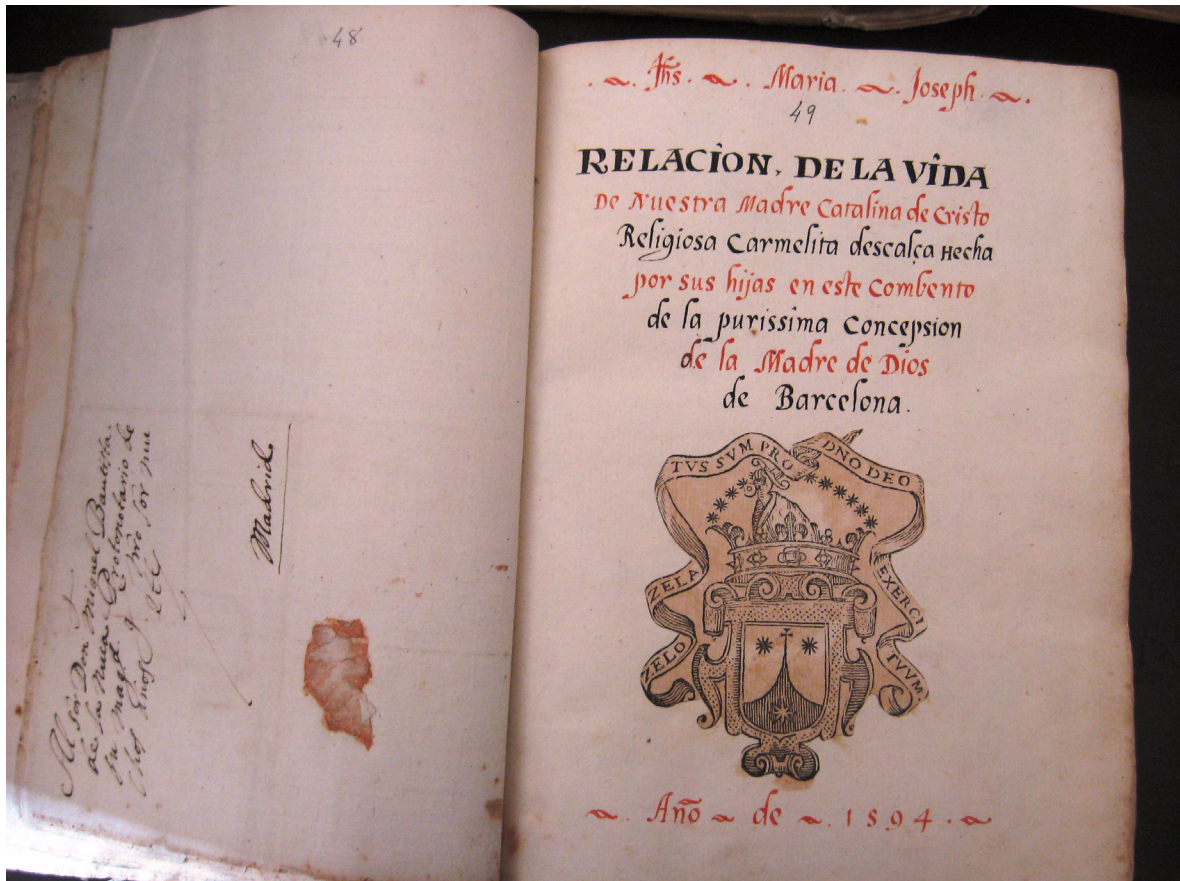 48
Al Sor Don Miguel Bautista
de la Nuça Protonotario de
su magd. q
chos
Madrid
. Jhs . . Maria . . Joseph . .
49
RELACION, DE LA VIDA
De Nuestra Madre Catalina de Cristo
Religiosa Carmelita descalça Hecha
por sus hijas en este Combento
de la purissima Concepsion
de la Madre de Dios
de Barcelona.
ZELO ZELATVS SVM PRO DÑO DEO EXERCITVVM
. Año de . 1594 .